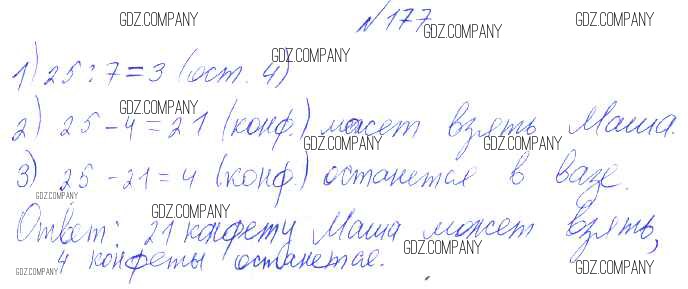 №177
1) 25:7=3 (ост. 4)
2) 25-4=21 (конф.) может взять Маша.
3) 25-21=4 (конф.) останется в вазе.
Ответ: 21 конфету Маша может взять,
4 конфеты останется.
GDZ.COMPANY
GDZ.COMPANY
GDZ.COMPANY
GDZ.COMPANY
GDZ.COMPANY
GDZ.COMPANY
GDZ.COMPANY
GDZ.COMPANY
GDZ.COMPANY
GDZ.COMPANY
GDZ.COMPANY
GDZ.COMPANY
GDZ.COMPANY